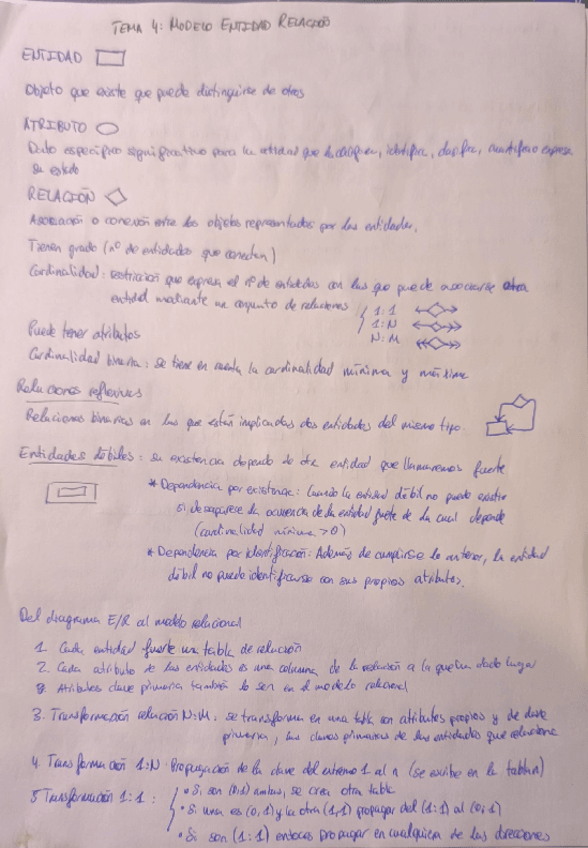 TEMA 4: MODELO ENTIDAD RELACIÓN
ENTIDAD
Objeto que existe que puede distinguirse de otros
ATRIBUTO
Dato específico significativo para la entidad que la, identifica, clasifica, expresa
su estado
RELACIÓN
Asociación o conexión entre los objetos representados por las entidades.
Tienen grado (nº de entidades que conectan)
Cardinalidad: restricción que expresa el nº de entidades con las que puede asociarse otra
entidad mediante un conjunto de relaciones
1:1
1:N
N:M
Puede tener atributos
Cardinalidad binaria: se tiene en cuenta la cardinalidad mínima y máxima
Relaciones reflexivas
Relaciones binarias en las que están implicadas dos entidades del mismo tipo.
Entidades débiles: su existencia depende de otra entidad que llamaremos fuerte
* Dependencia por existencia: Cuando la entidad débil no puede existir
si desaparece la ocurrencia de la entidad fuerte de la cual depende
(cardinalidad mínima > 0)
* Dependencia por identificación: Además de cumplirse lo anterior, la entidad
débil no puede identificarse con sus propios atributos.
Del diagrama E/R al modelo relacional
1. Cada entidad fuerte una tabla de relación
2. Cada atributo de las entidades es una columna de la relación a la que han dado lugar
Atributos clave primaria también lo son en el modelo relacional
3. Transformación relación N:M: se transforma en una tabla con atributos propios y de clave
primaria, las claves primarias de las entidades que relaciona
4. Transformación 1:N. Propagación de la clave del extremo 1 al n (se escribe en la tabla n)
5 Transformación 1:1:
• Si son (0,1) ambas, se crea otra tabla
• Si una es (0,1) y la otra (1,1) propagar del (1:1) al (0,1)
• Si son (1:1) entonces propagar en cualquiera de las direcciones